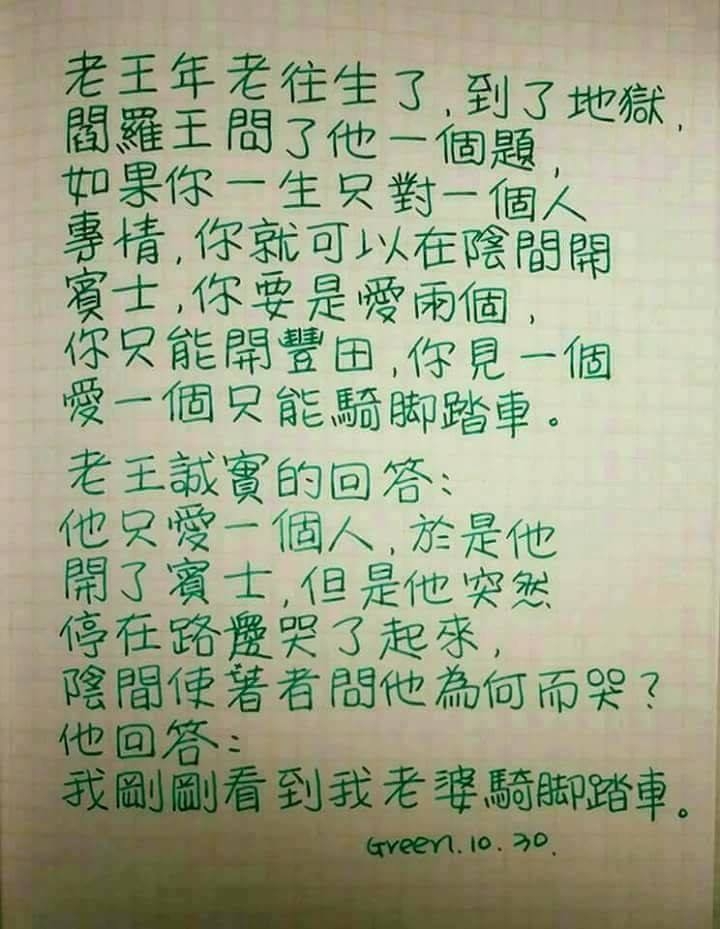 老王年老往生了,到了地獄,
閻羅王問了他一個題,
如果你一生只對一個人
專情,你就可以在陰間開
賓士,你要是愛兩個,
你只能開豐田,你見一個
愛一個只能騎腳踏車。
老王誠實的回答:
他只愛一個人,於是他
開了賓士,但是他突然
停在路邊哭了起來,
陰間使著者問他為何而哭?
他回答:
我剛剛看到我老婆騎腳踏車。
Green.10.30.